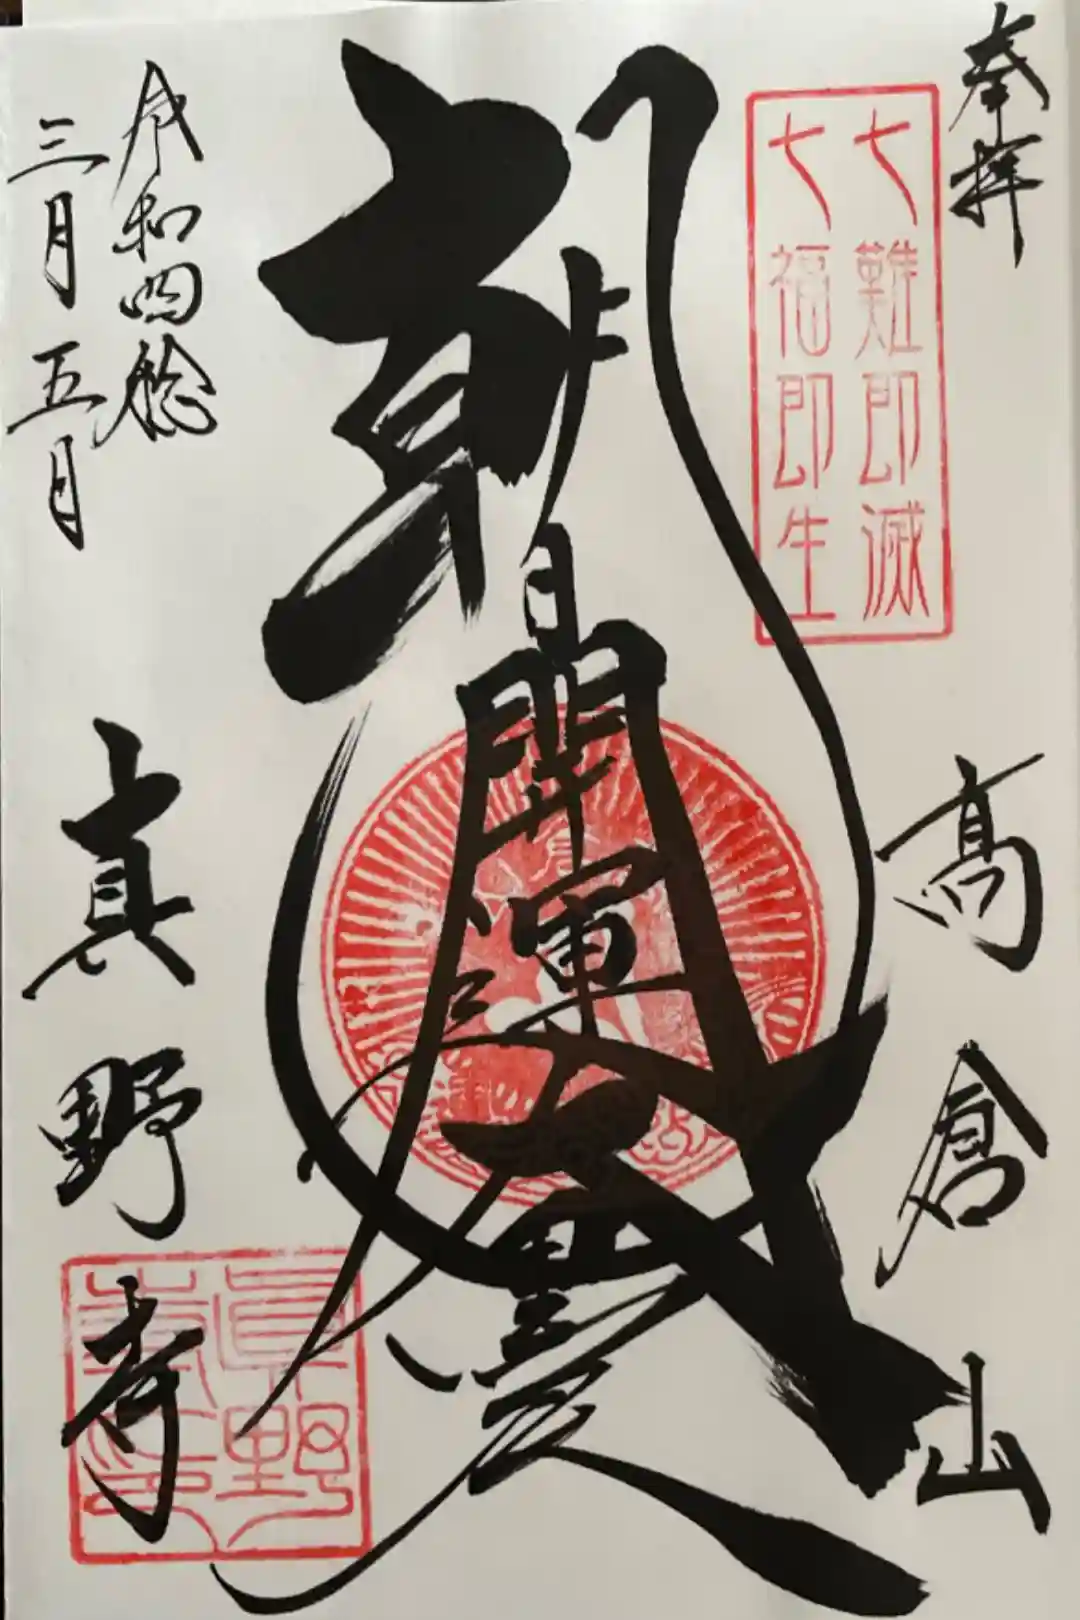 奉拝
七難即滅
七福即生
高倉山
朝日開運大黒天
令和四年
三月五日
真野寺
真野寺印